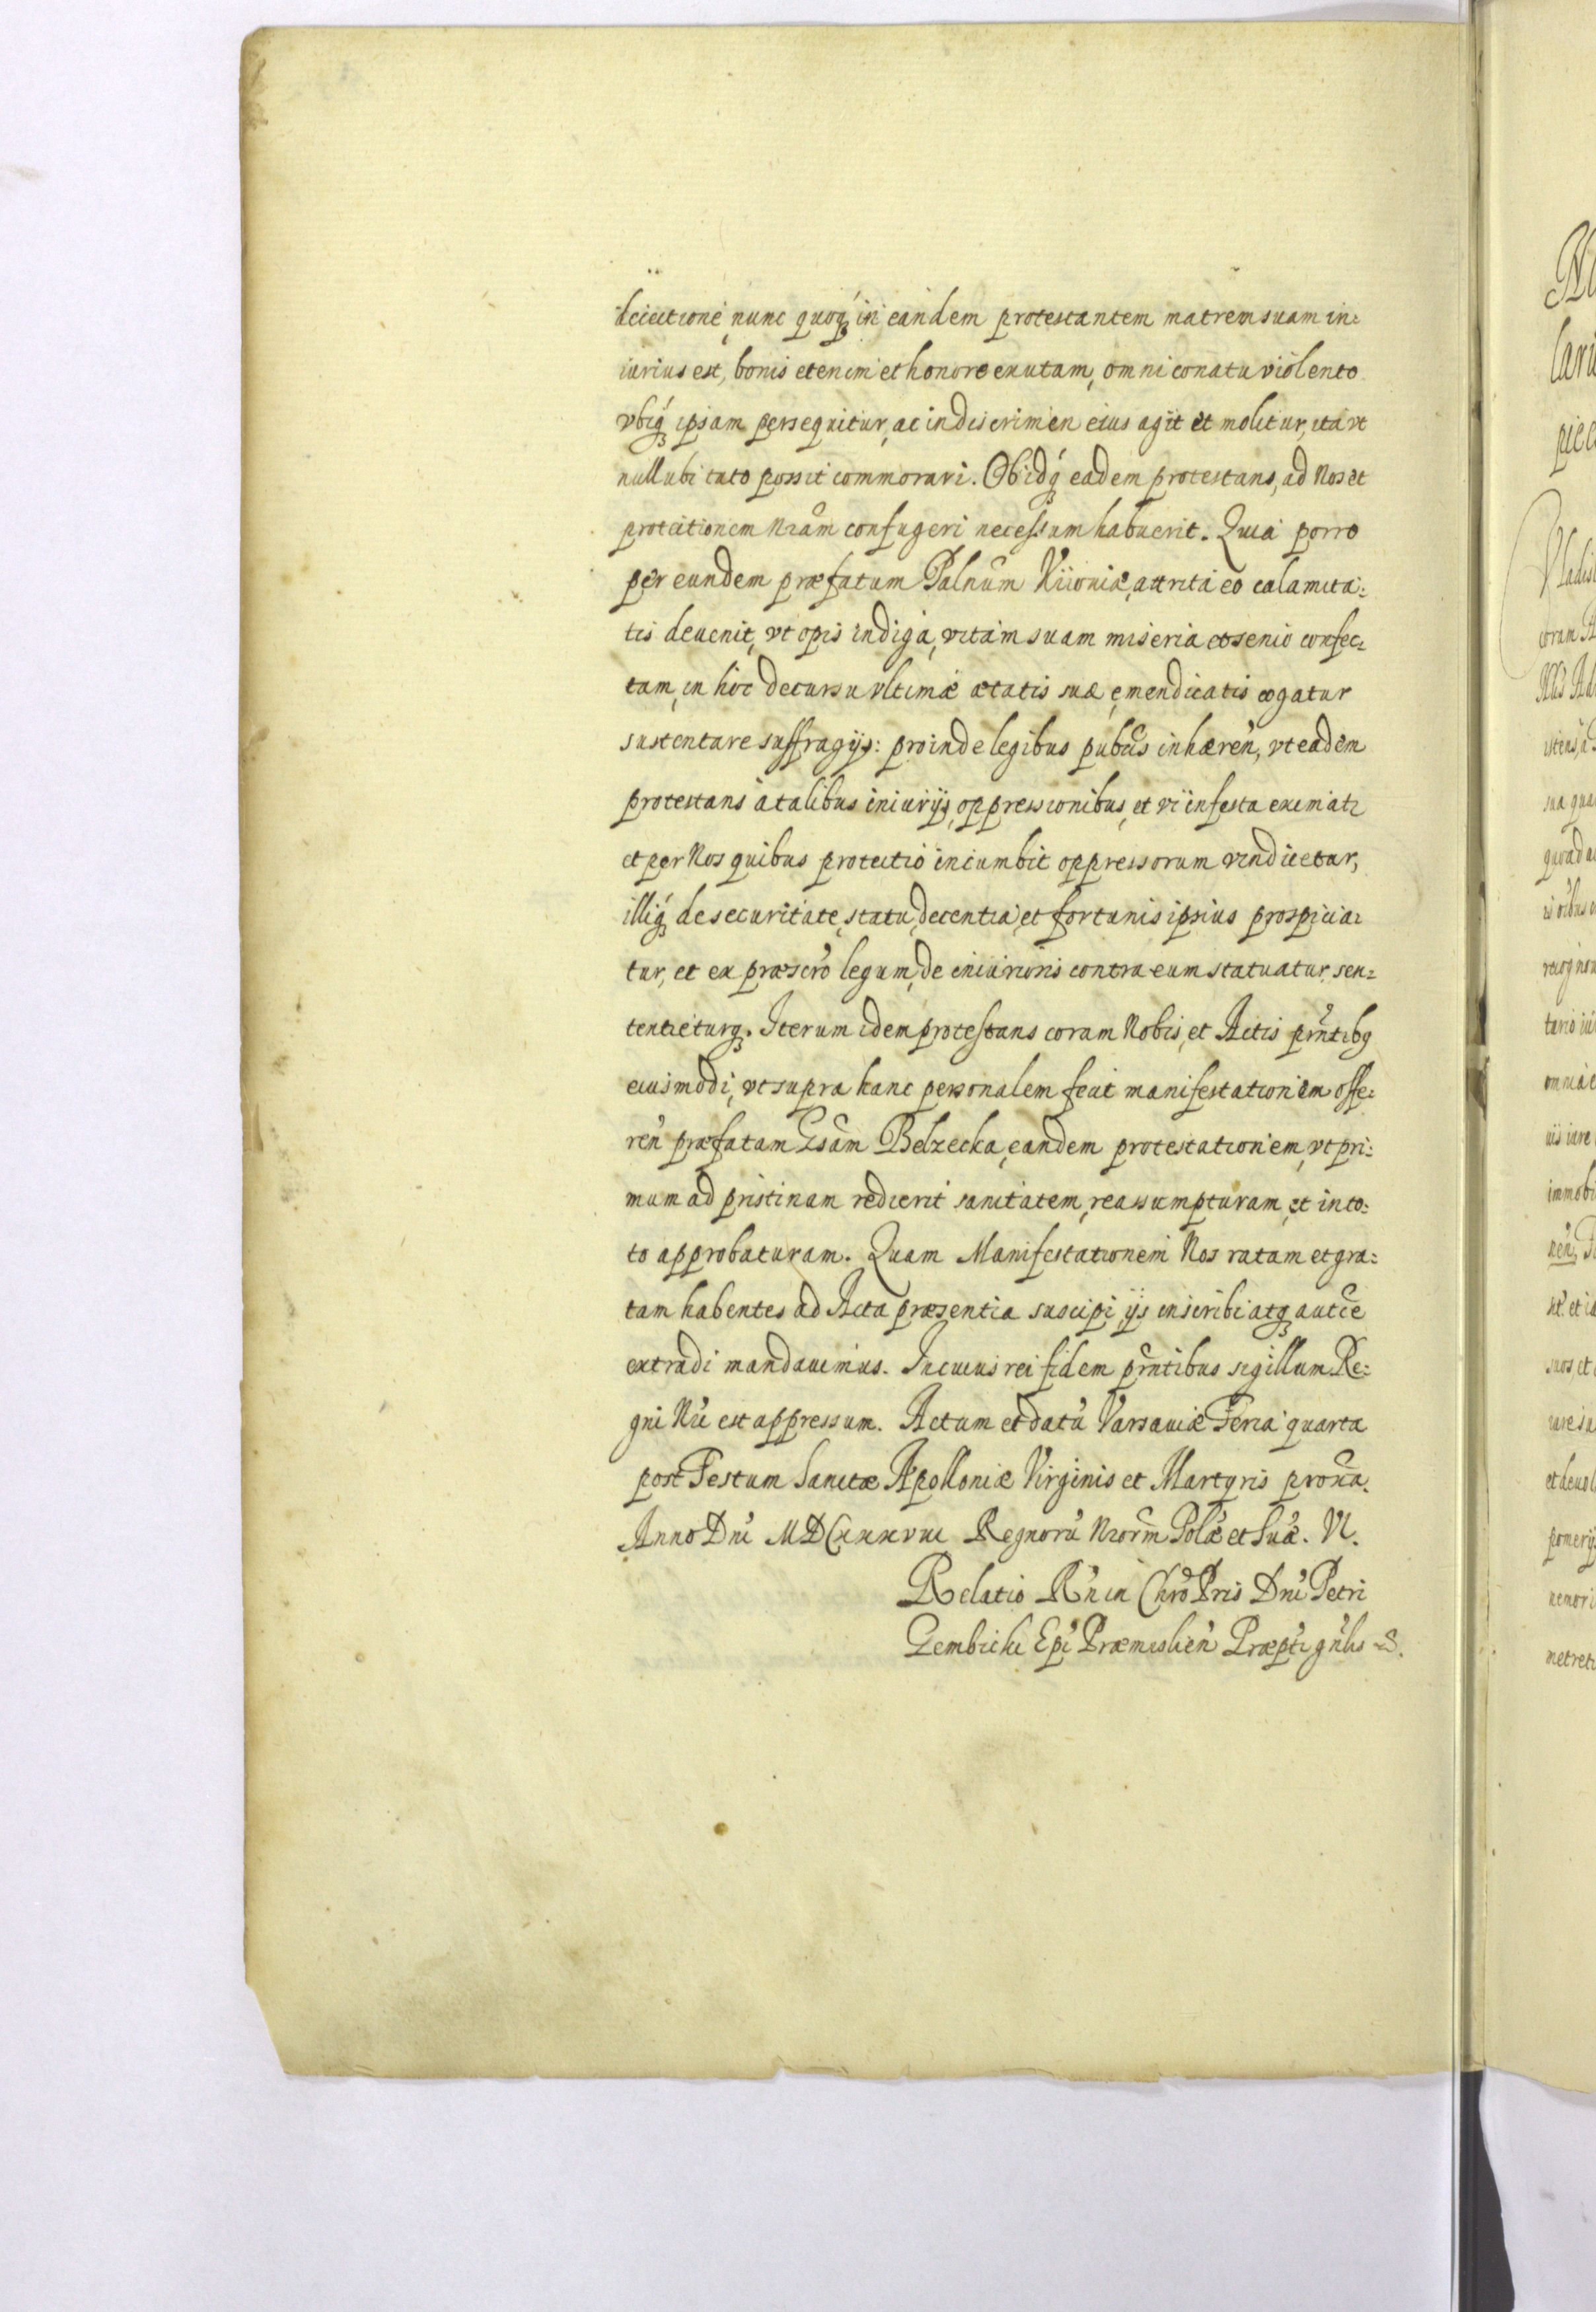 deiectione, nunc quoq́ in eandem protestantem matrem suam in:
iurius est, bonis etenim et honore exutam, omni conatu violento
vbiq́ ipsam persequitur, ac in discrimen eius agit et molitur, ita vt
nullubi tuto possit commorari. Ob idq́ eadem protestans, ad Nos et
protectionem Nram confugeri necessum habuerit. Quia porro
per eundem præfatum Palnum Kiiouiæ, attrita eo calamita:
tis deuenit, vt opis indiga, vitam suam miseria et senio confec:
tam, in hoc decursu vltimæ ætatis suæ, emendicatis cogatur
sustentare suffragijs: proinde legibus pubcis inhæren, vt eadem
protestans a talibus iniurijs, oppressionibus, et vi infesta eximatr
et per Nos quibus protectio incumbit oppressorum vindicetur,
illiq́ de securitate, statu, decentia, et fortunis ipsius prospicia:
tur, et ex præscro legum, de iniurioris contra eum statuatur, sen:
tentieturq. Iterum idem protestans coram Nobis, et Actis prntibq
eiusmodi, vt supra hanc personalem fecit manifestationem offe:
ren præfatam Gsam Belzecka, eandem protestationem, vt pri:
mum ad pristinam redierit sanitatem, reassumpturam, et in to:
to approbaturam. Quam Manifestationem Nos ratam et gra:
tam habentes ad Acta præsentia suscipi, ijs inscribi atq autce
extradi mandauimus. In cuius rei fidem prntibus sigillum Re:
gni Nri est appressum. Actum et datu Varsauiæ Feria quarta
post Festum Sanctæ Apolloniæ Virginis et Martyris proxa.
Anno Dni MDCxxxviii Regnoru Nrorm Polæ et Suæ. VI.
Relatio Rn in Chro Pris Dni Petri
Gembicki Epi Præmislien Præpti gnlis